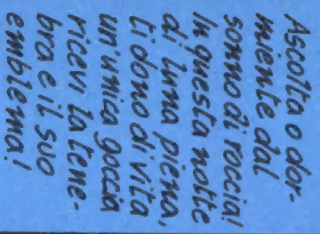 Ascolta o dor-
miente dal
sonno di roccia!
In questa notte
di luna piena,
ti dono di vita
un'unica goccia
ricevi la tene-
bra e il suo
emblema!